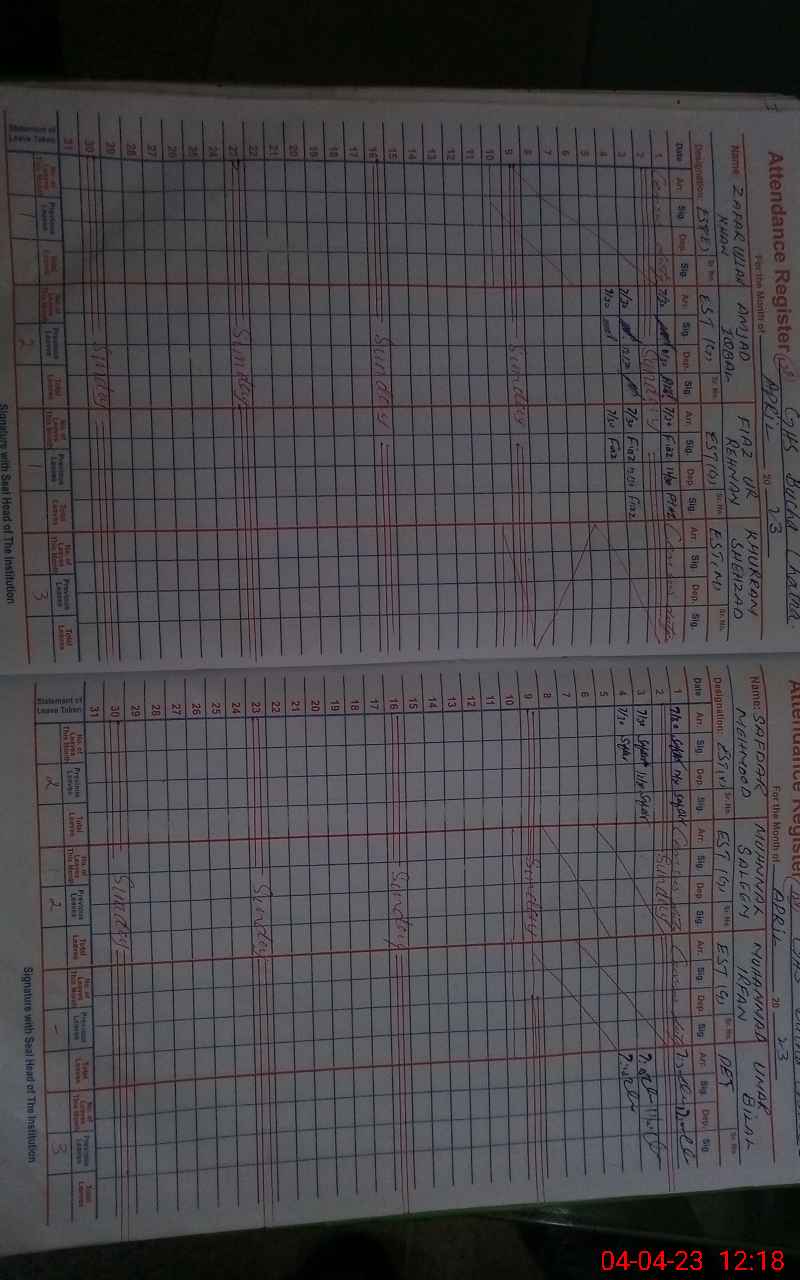 Attendance Register GHS Bucha Chatha
For the Month of APRIL 20 23
Name: ZAFAR ULLAH KHAN AMJAD IQBAL FIAZ UR REHMAN KHURRAM SHEHZAD
Designation: EST(E) Sr. No. EST (G) Sr. No. EST(G) Sr. No. EST(M) Sr. No.
Date Arr. Sig. Dep. Sig. Arr. Sig. Dep. Sig. Arr. Sig. Dep. Sig. Arr. Sig. Dep. Sig.
1 Census duty 7/30 7/30 Fiaz 11/30 Fiaz Census duty
2 Sunday
3 7/30 7/30 Fiaz Fiaz
4 7/30 7/30 Fiaz
5
6
7
8
9 Sunday
10
11
12
13
14
15
16 Sunday
17
18
19
20
21
22
23 Sunday
24
25
26
27
28
29
30 Sunday
31
Statement of Leave Taken No. of Leaves This Month Previous Leaves Total Leaves No. of Leaves This Month Previous Leaves Total Leaves No. of Leaves This Month Previous Leaves Total Leaves No. of Leaves This Month Previous Leaves Total Leaves
1 2 11 3
Signature with Seal Head of The Institution
Attendance Register
For the Month of APRIL 20 23
Name: SAFDAR MEHMOOD MUHAMMAD SALEEM MUHAMMAD IRFAN UMAR BILAL
Designation: EST(V) Sr. No. EST (G) Sr. No. EST (G) Sr. No. Sr. No.
Date Arr. Sig. Dep. Sig. Arr. Sig. Dep. Sig. Arr. Sig. Dep. Sig. Arr. Sig. Dep. Sig.
1 7/30 Census duty Census duty
2 Sunday
3 7/30
4 7/30
5
6
7
8
9 Sunday
10
11
12
13
14
15
16 Sunday
17
18
19
20
21
22
23 Sunday
24
25
26
27
28
29
30 Sunday
31
Statement of Leave Taken No. of Leaves This Month Previous Leaves Total Leaves No. of Leaves This Month Previous Leaves Total Leaves No. of Leaves This Month Previous Leaves Total Leaves No. of Leaves This Month Previous Leaves Total Leaves
2 2 - 3
Signature with Seal Head of The Institution
04-04-23 12:18